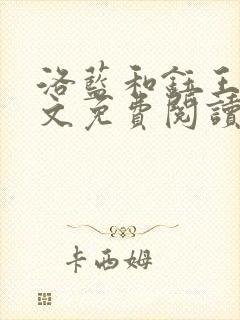 洛藍和鈺王
文免費閱讀
卡西姆